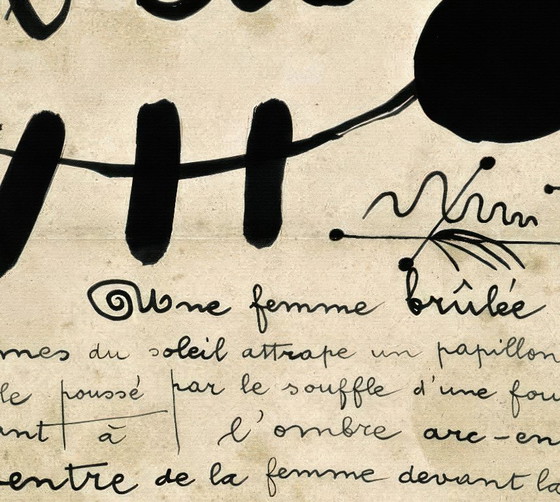 Une femme brûlée
mes du soleil attrape un papillon
le poussé par le souffle d'une fou
ant à l'ombre arc-en
entre de la femme devant la